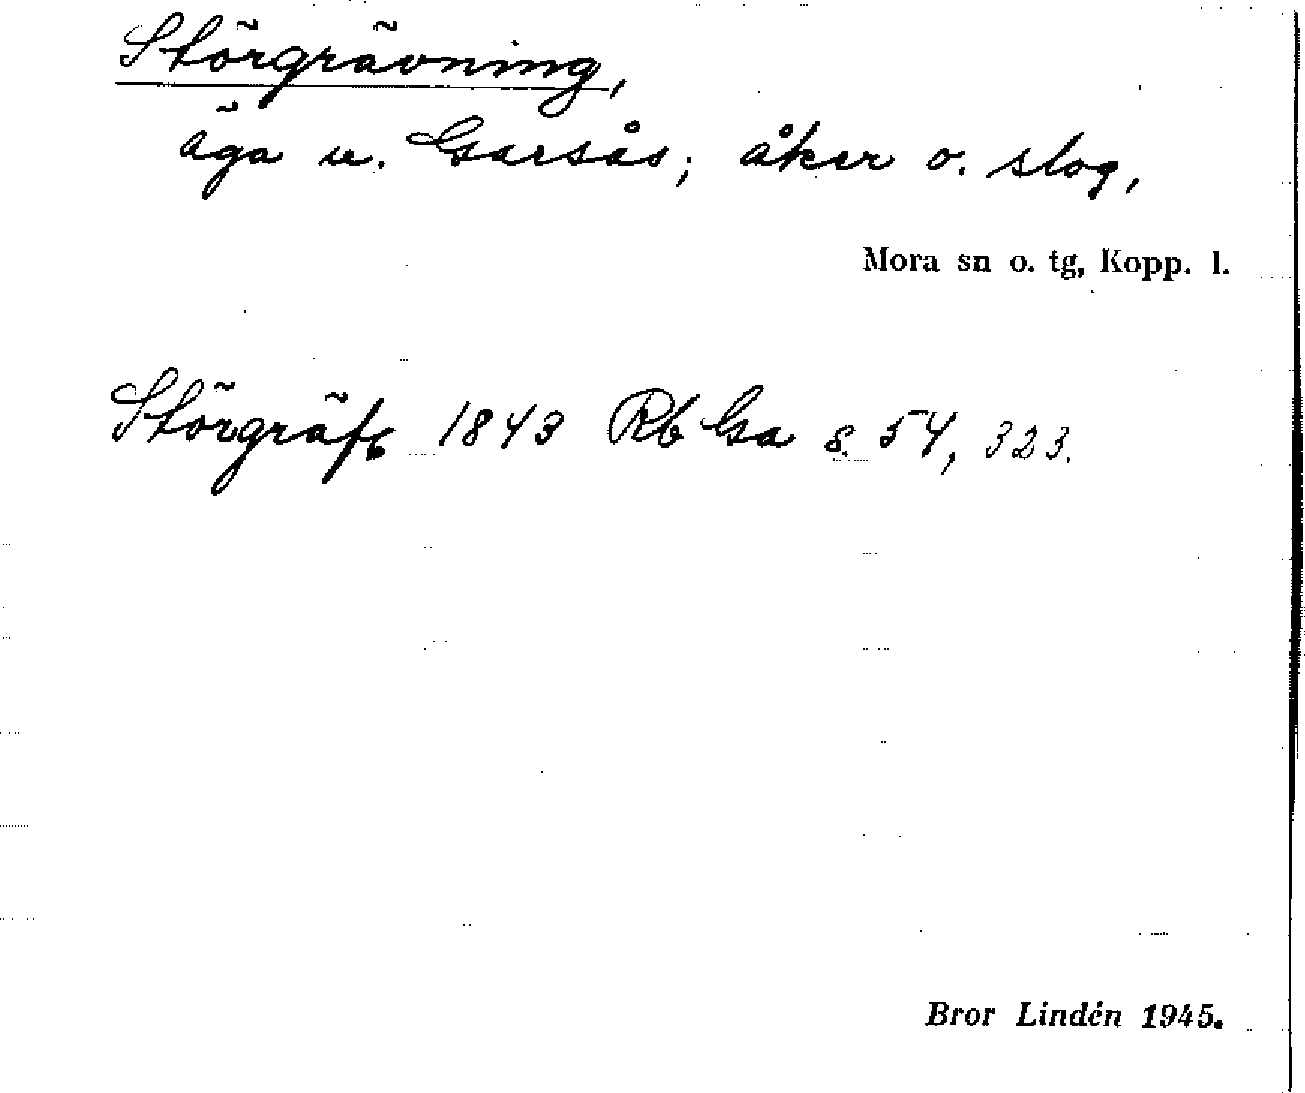 Störgrävning,
äga u. Garsås; åker o. slog,
Mora sn o. tg, Kopp. l.
Störgräfs 1843 Rb Ga s. 54, 323.
Bror Lindén 1945.